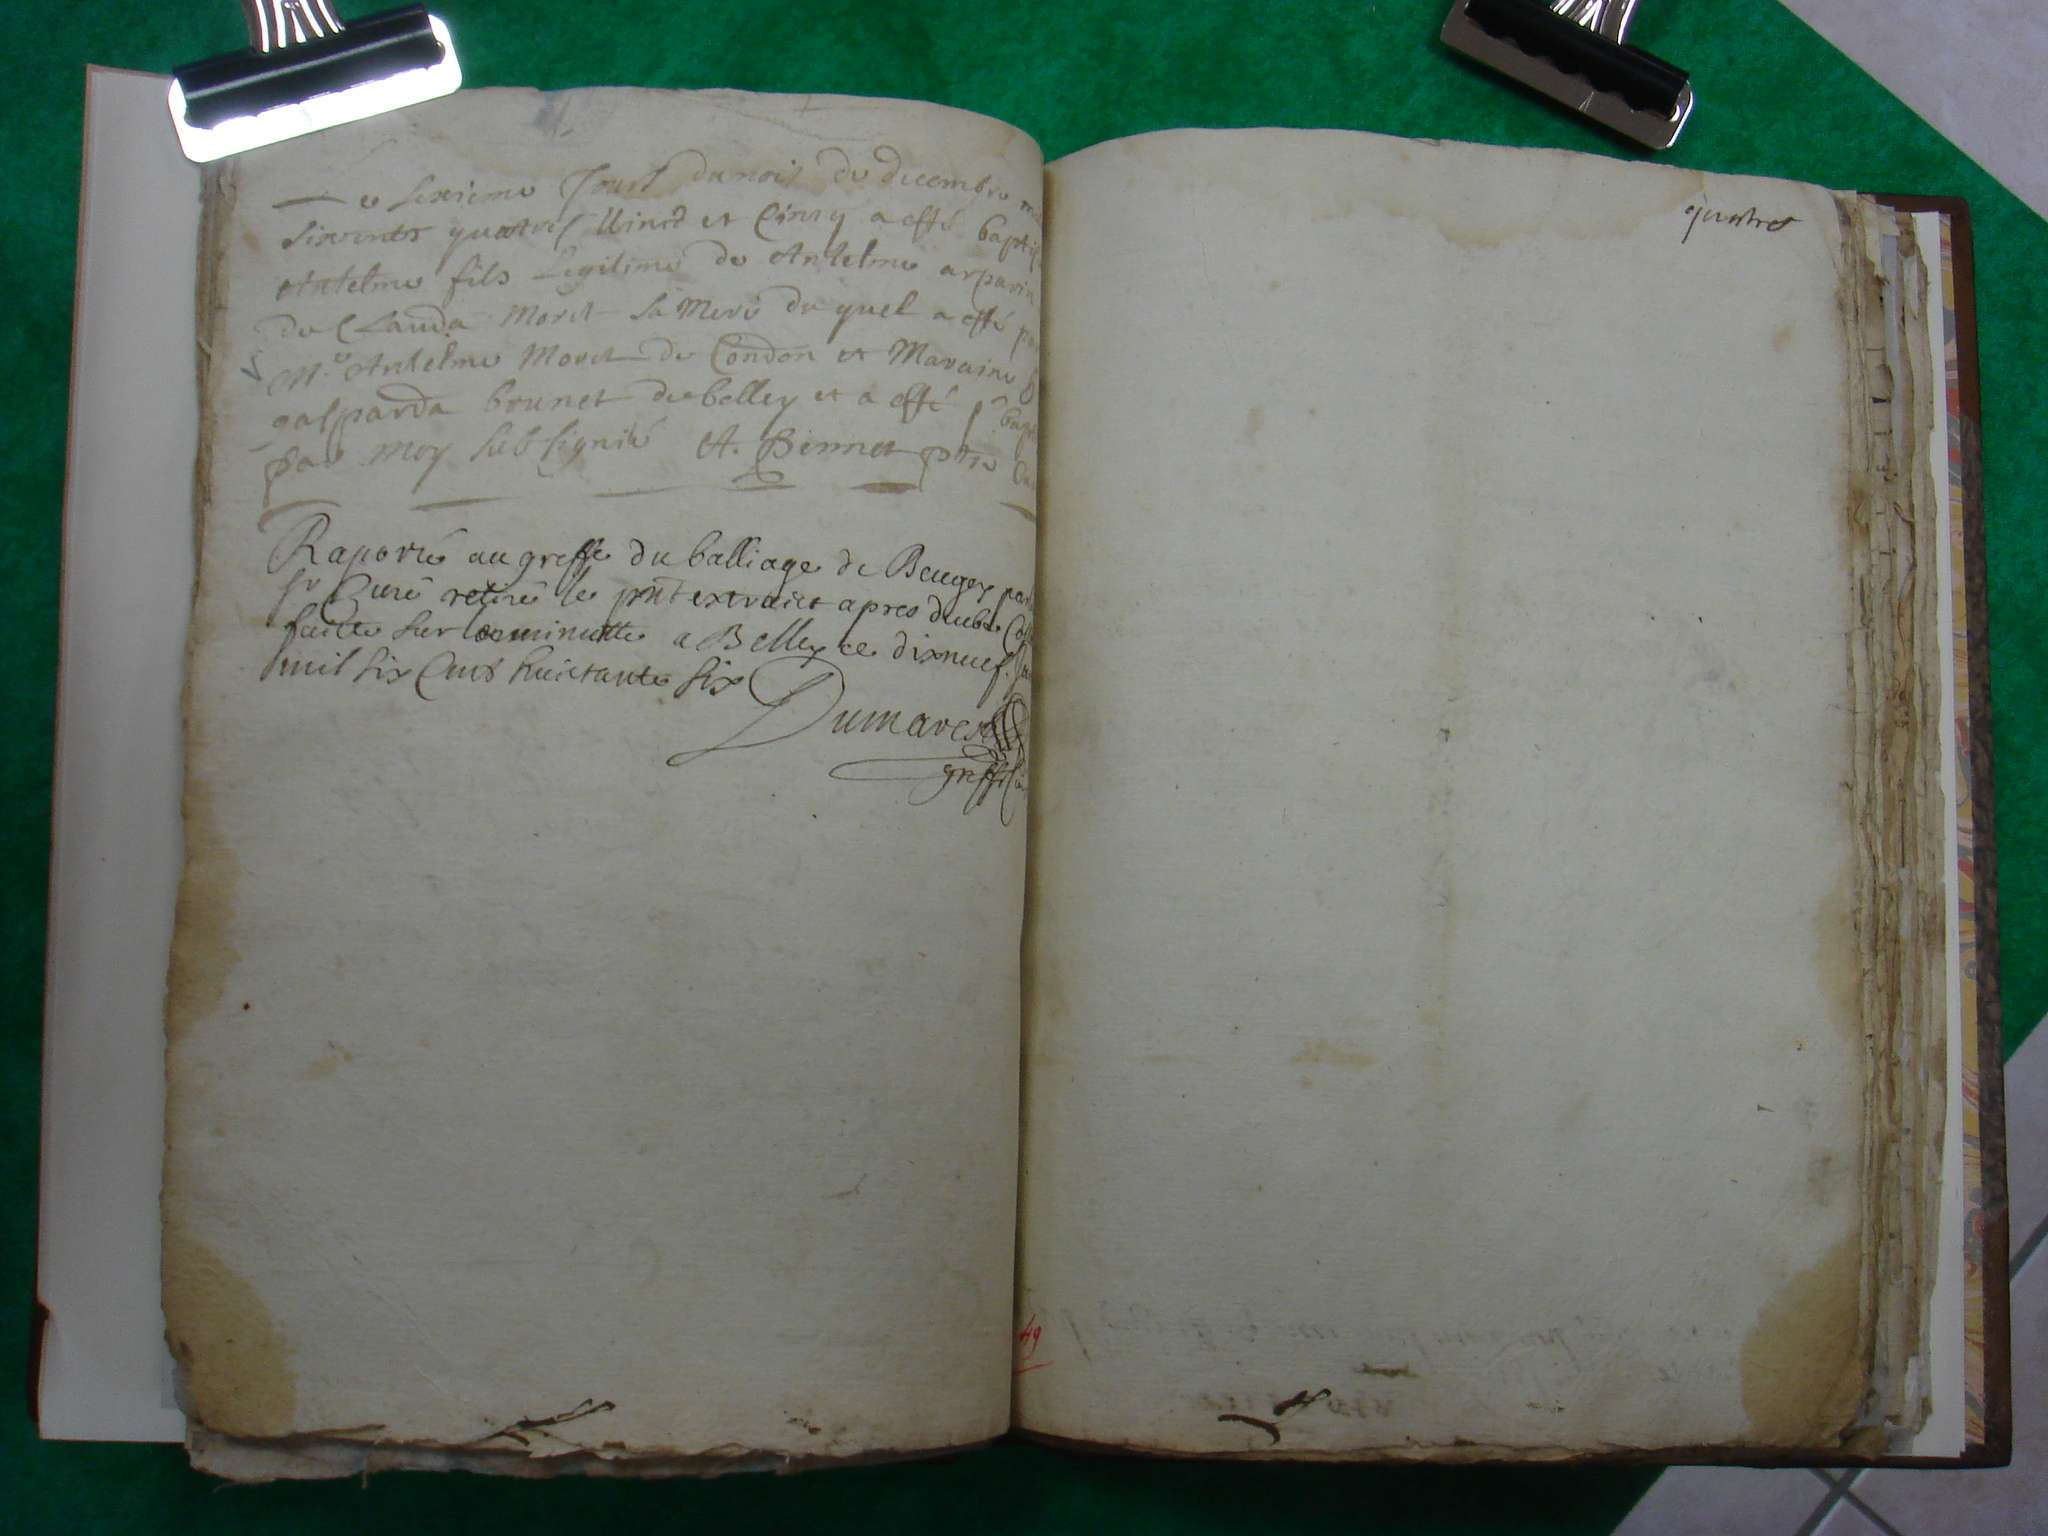 Le sixieme Jour du mois de decembre
sixcents quatres Vinct et Cincq a esté bapti
Antelme fils Legitime de Antelme arpavin
de Clauda Moret sa Mere du quel a esté
Mre Antelme Moret de Condon et Maraine
gasparda brunet de belley et a esté
par moy sub signé A. Binnet
Raporté au greffe du balliage de Beugey par
sr Curé retiré le pnt extraict apres deube
faicte sur la minutte a Belley ce dixneuf
mil six Cens huictante six
Dumarest
greffi
quatres
49